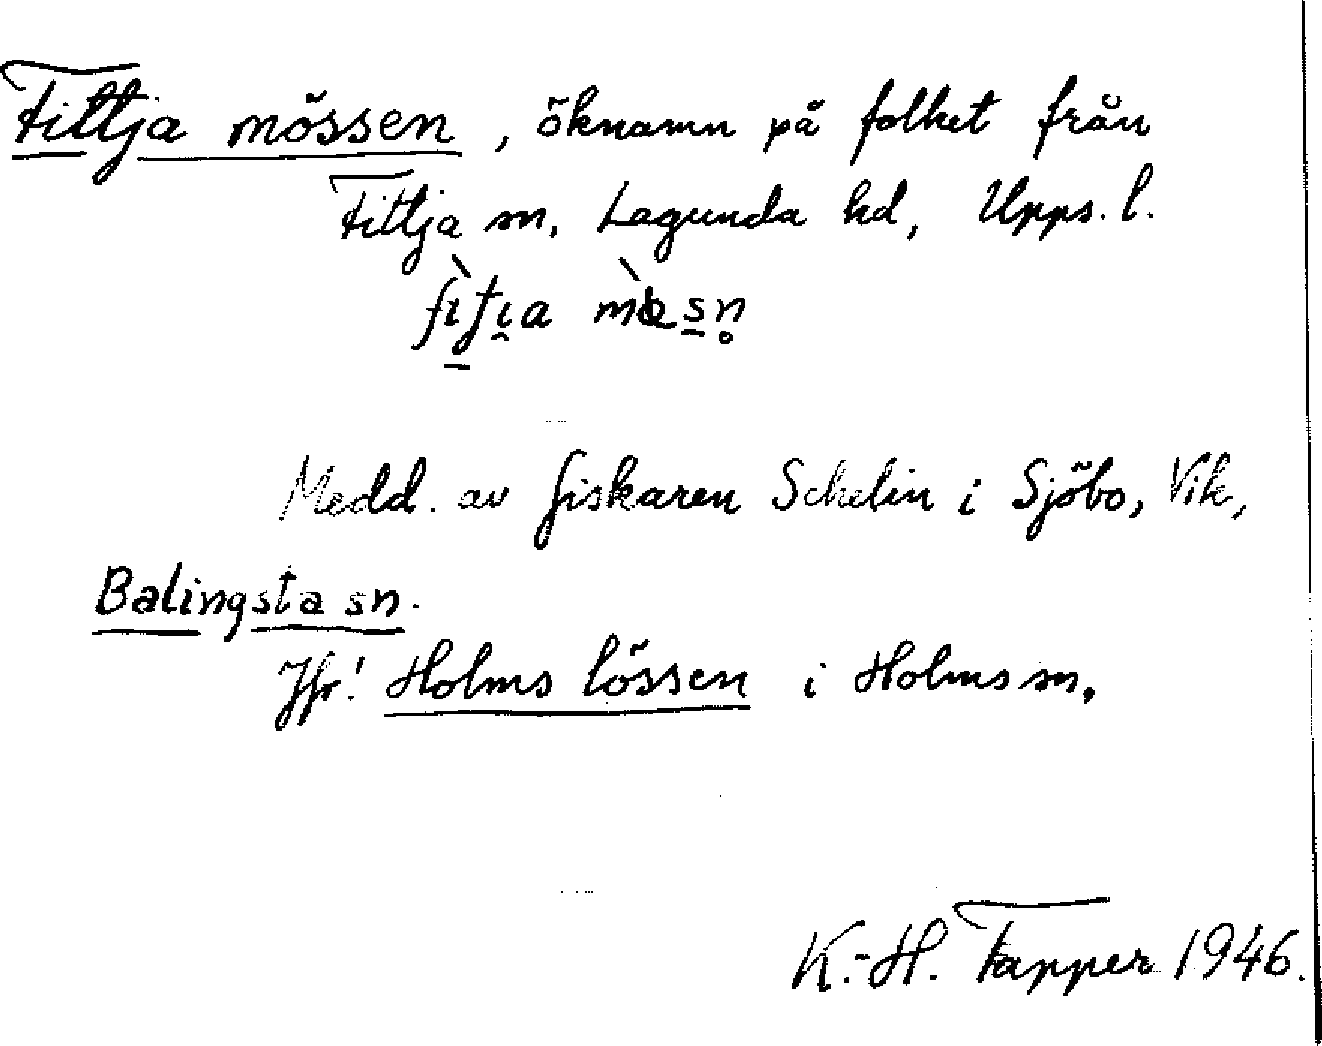 Fittja mössen, öknamn på folket från
Fittja sn, Lagunda hd, Upps. l.
Medd. av fiskaren Schelin i Sjöbo, Vik,
Balingsta sn.
Jfr! Holms lössen i Holms sn.
K.-H. Tapper 1946.